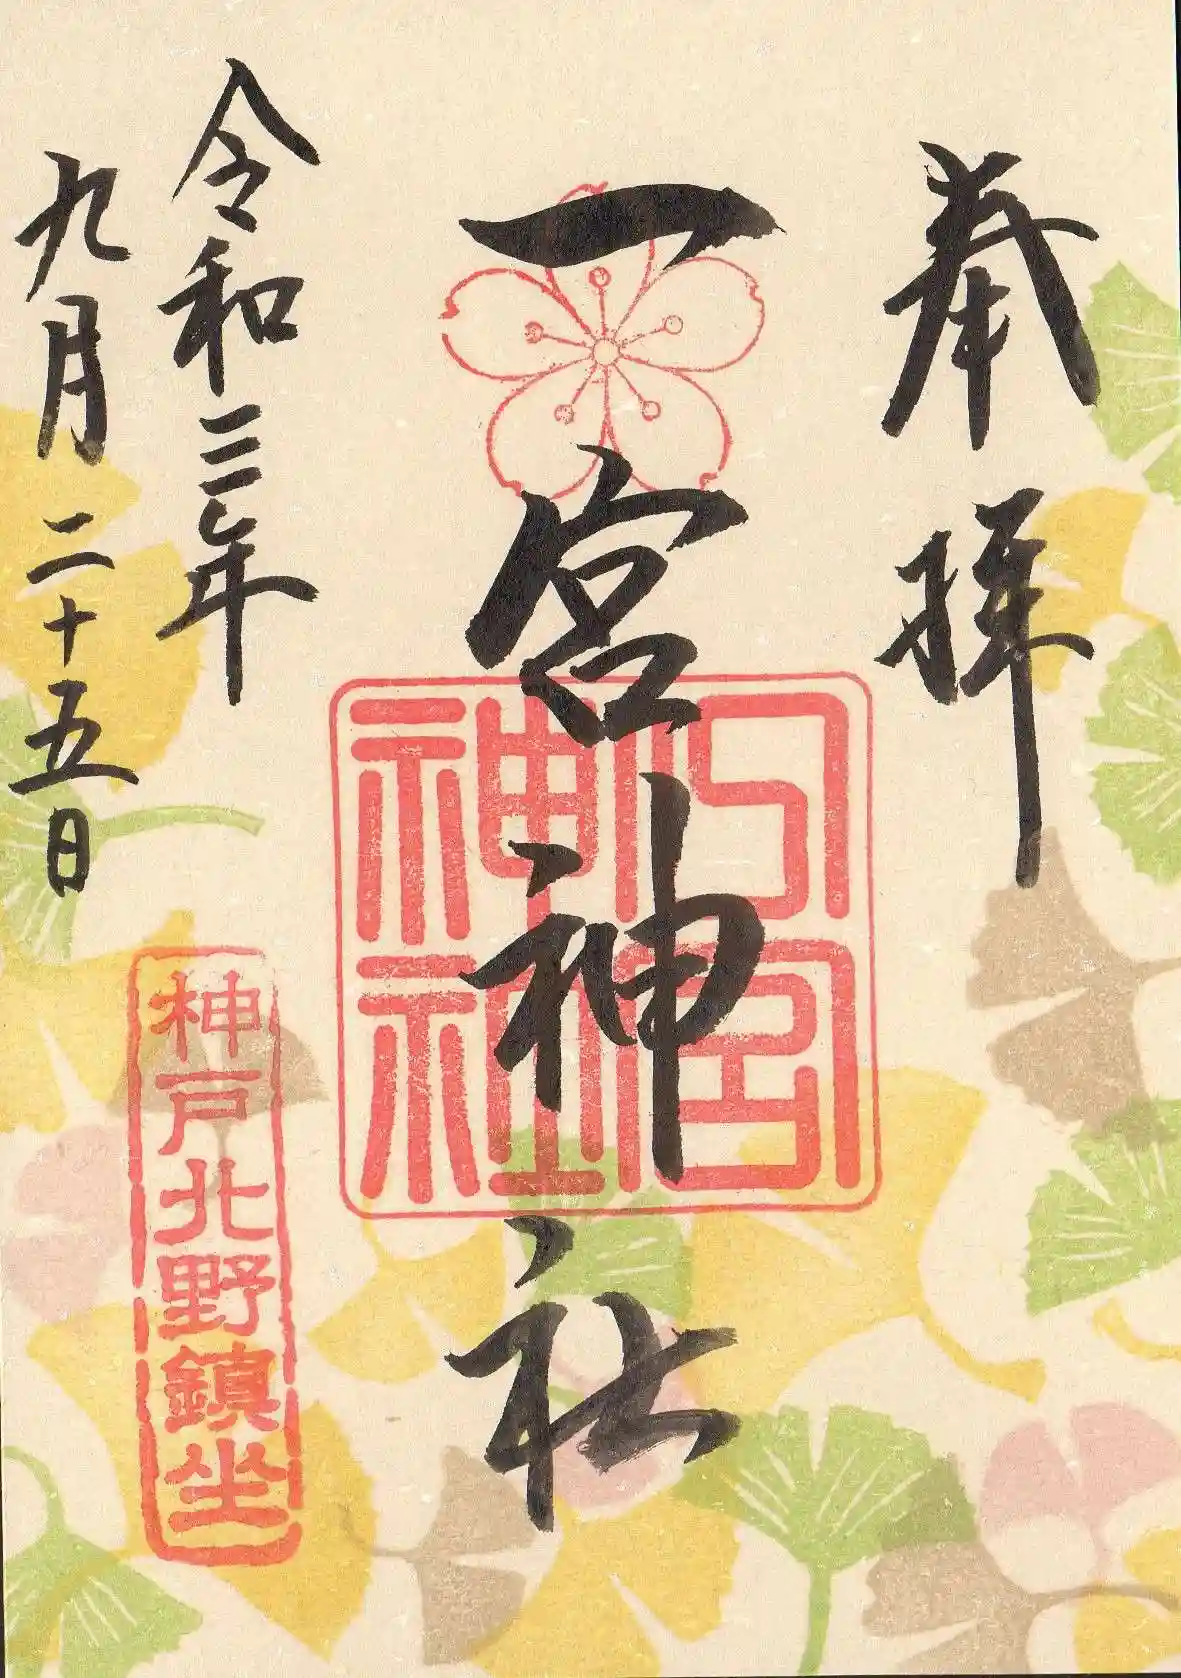 奉拝
一宮神社
一宮神社
令和三年
九月二十五日
神戸北野鎮坐